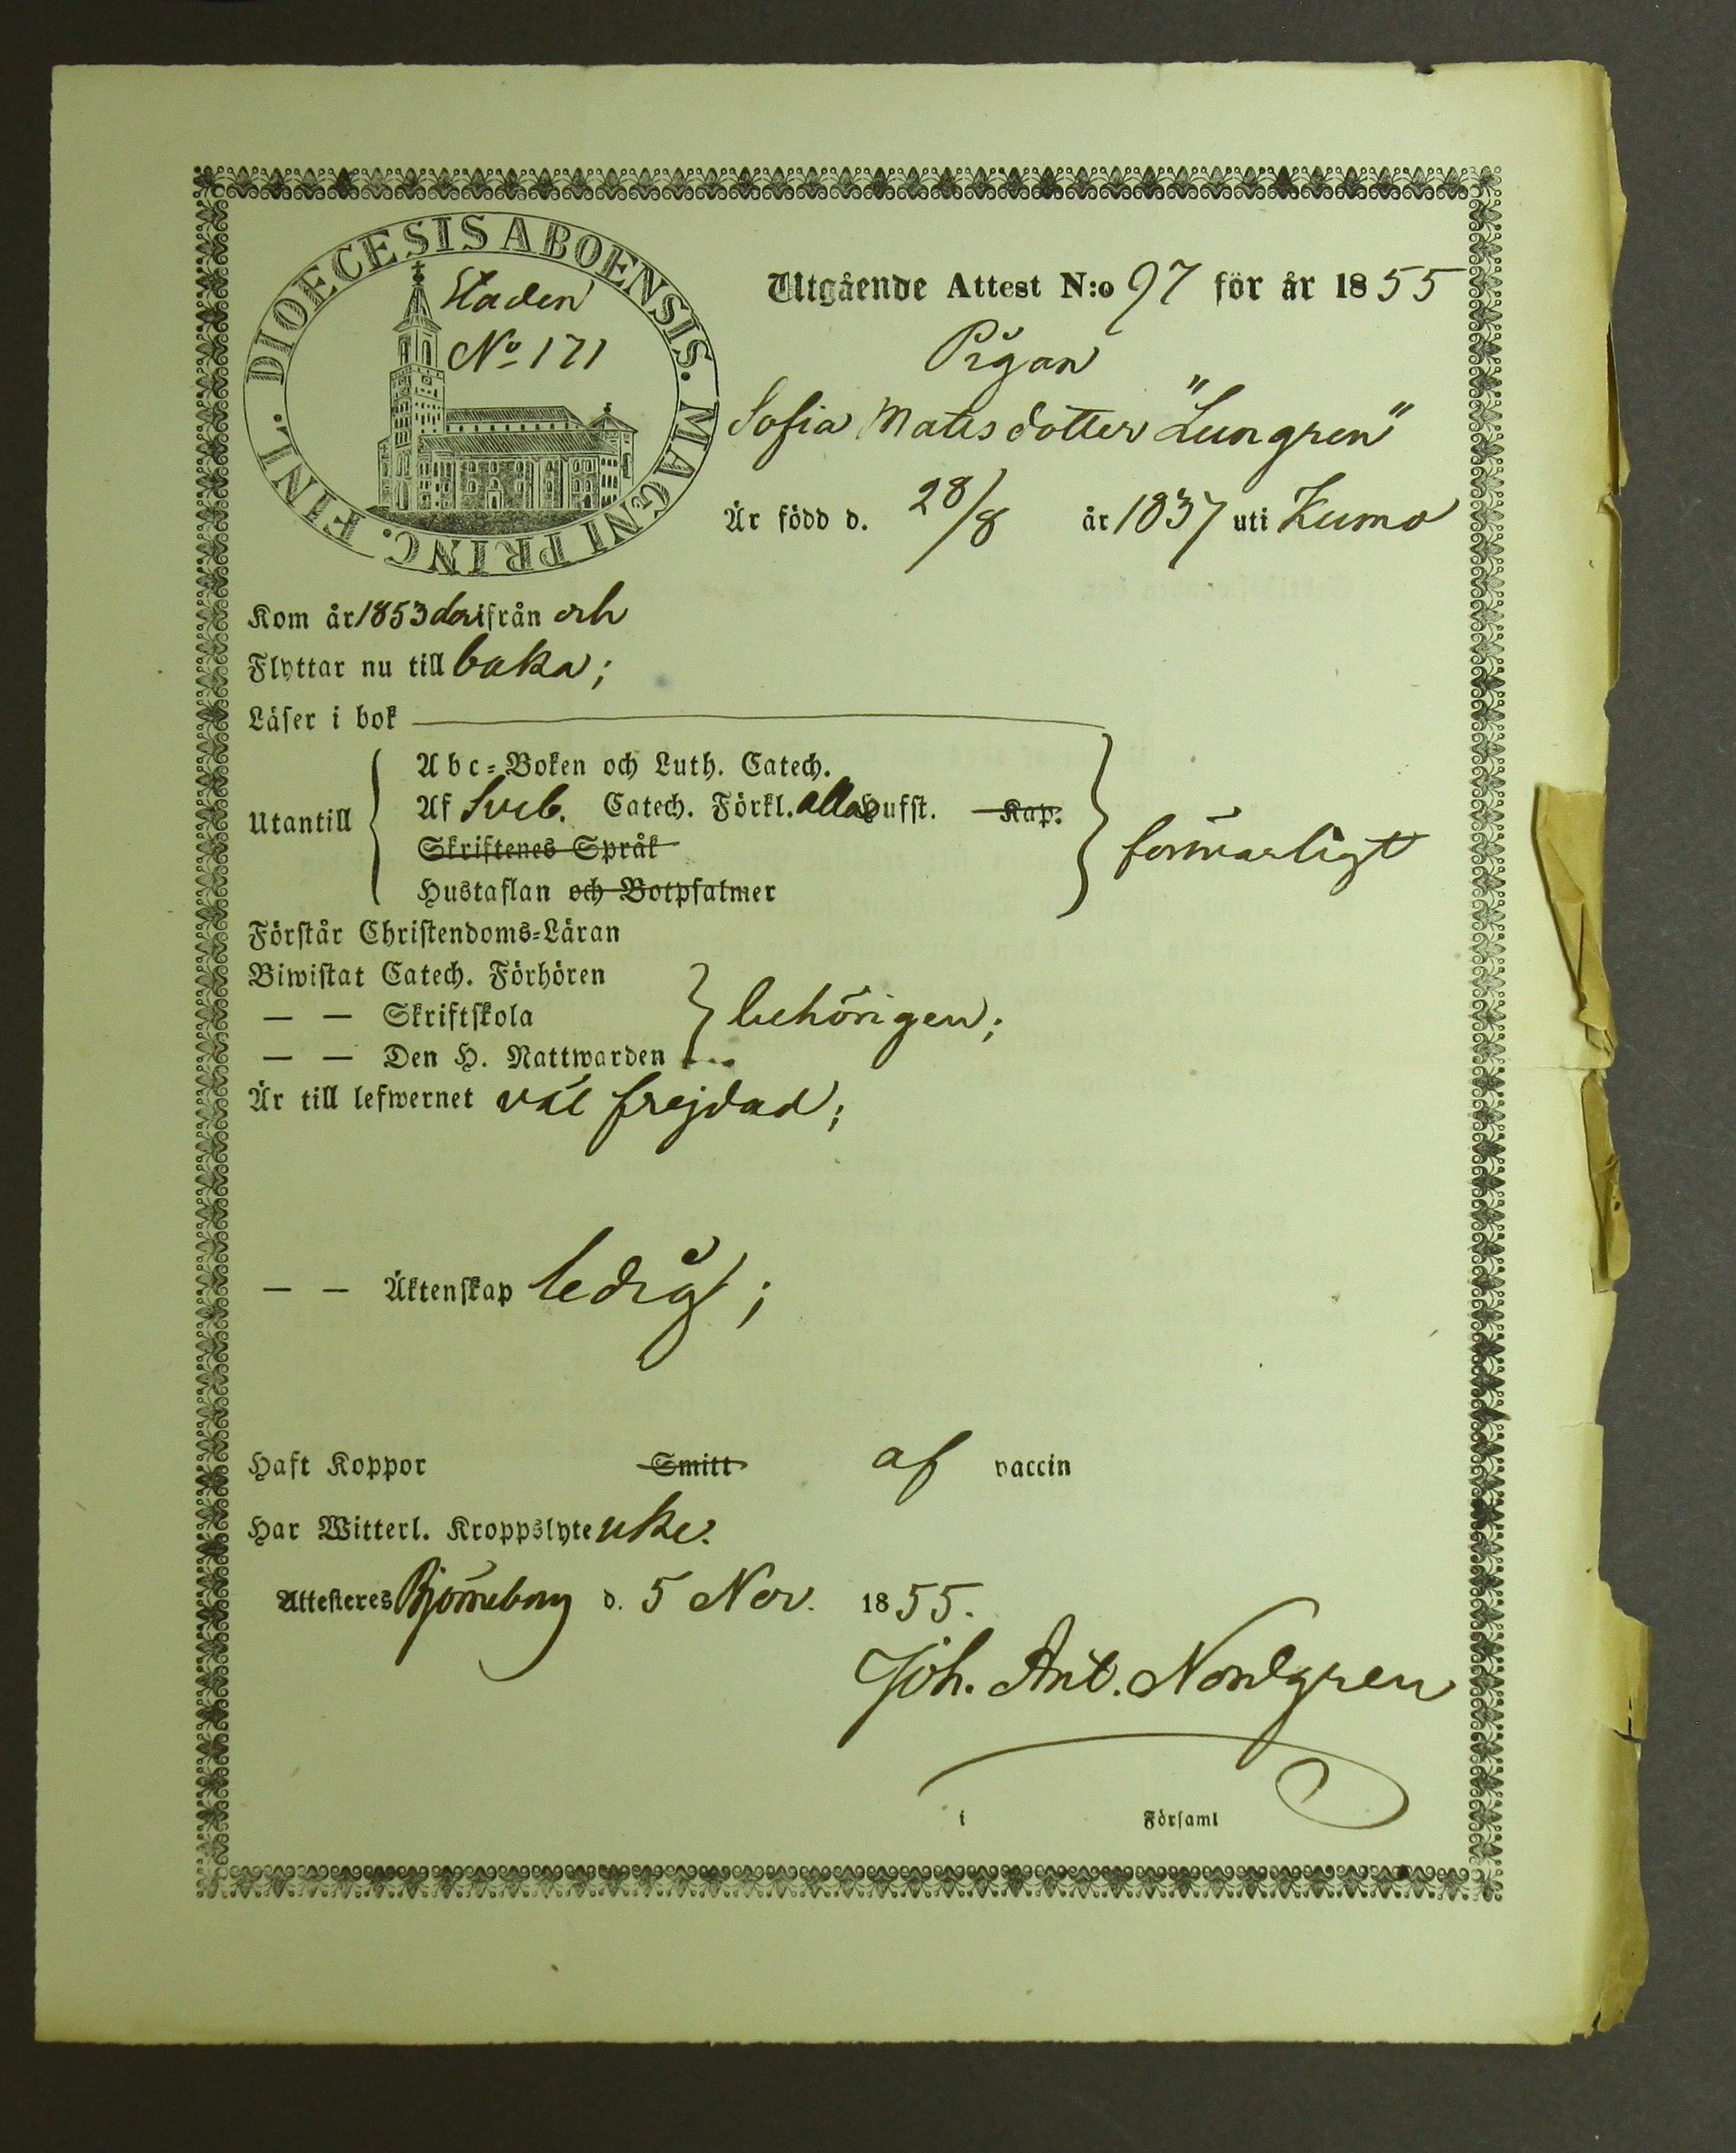 DIOECESIS ABOENSIS. MAGNI PRINC. FINL.
Staden
No 171
Utgående Attest N:o 97 för år 1855
Pigan
Sofia Matsdotter "Lungren"
Är född d. 28/8 år 1837 uti Kumo
Kom år 1853 derifrån och
Flyttar nu till baka;
Läser i bok
Utantill
Abc-Boken och Luth. Catech.
Af Sveb. Catech. Förkl. alla Hufst. Kap.
Skriftenes Språk
Hustaflan och Botpsalmer
försvarligt
Förstår Christendoms-Läran
Biwistat Catech. Förhören
— — Skriftskola
— — Den H. Nattwarden
behörigen;
Är till lefwernet väl frejdad;
— — Äktenskap ledig;
Haft Koppor Smitt af vaccin
Har Witterl. Kroppslyte icke.
Attesteres Björneborg d. 5 Nov. 1855.
Joh. Ant. Nordgren
i Församl